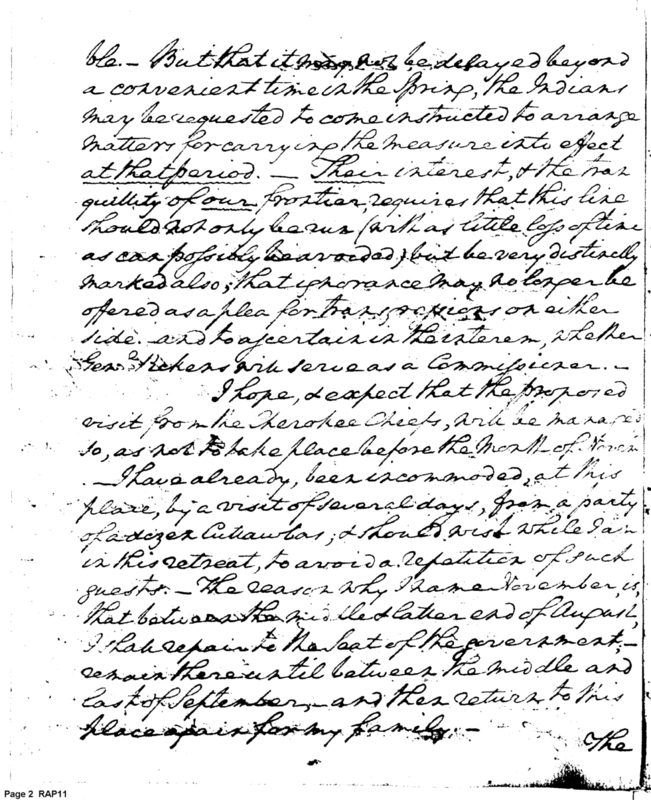 ble. - But that it may not be delayed beyond
a convenient time in the Spring, the Indians
may be requested to come instructed to arrange
matters for carrying the measure into effect
at that period. - Their interest, & the tran
quillity of our frontier, requires that this line
should not only be run (with as little loss of time
as can possibly be avoided) but be very distinctly
marked also; that ignorance may no longer be
offered as a plea for transgressions on either
side. and to ascertain in the interem, whether
Genl. Pickens will serve as a Commissioner. -
I hope, & expect that the proposed
visit from the Cherokee Chiefs, will be managed
so, as not to take place before the Month of Novem
. - I have already, been incommoded, at this
place, by a visit of several days, from a party
of a dozen Cuttawbas; & should wish while I am
in this retreat, to avoid a repetition of such
guests. - The reason why I name November, is,
that between the middle & latter end of August,
I shall repair to the Seat of the government; -
remain there until between the middle and
last of September, - and then return to this
place again for my family. -
The
Page 2 RAP11